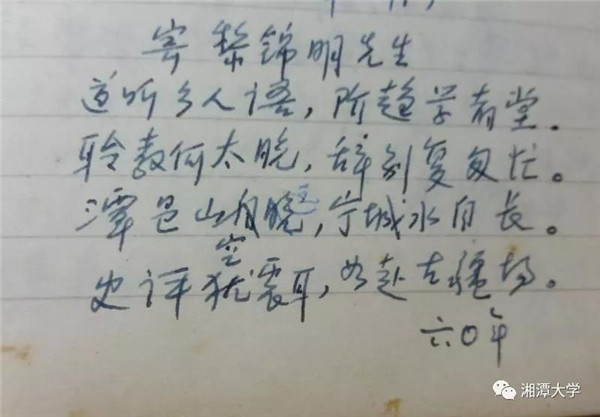 寄黎锦明先生
道听乡人语，阶趋学者堂。
聆教何太晚，辞别复匆忙。
潭邑山月晓，宁城水自长。
空
史评犹震耳，如赴古疆场。
六〇年
湘潭大学